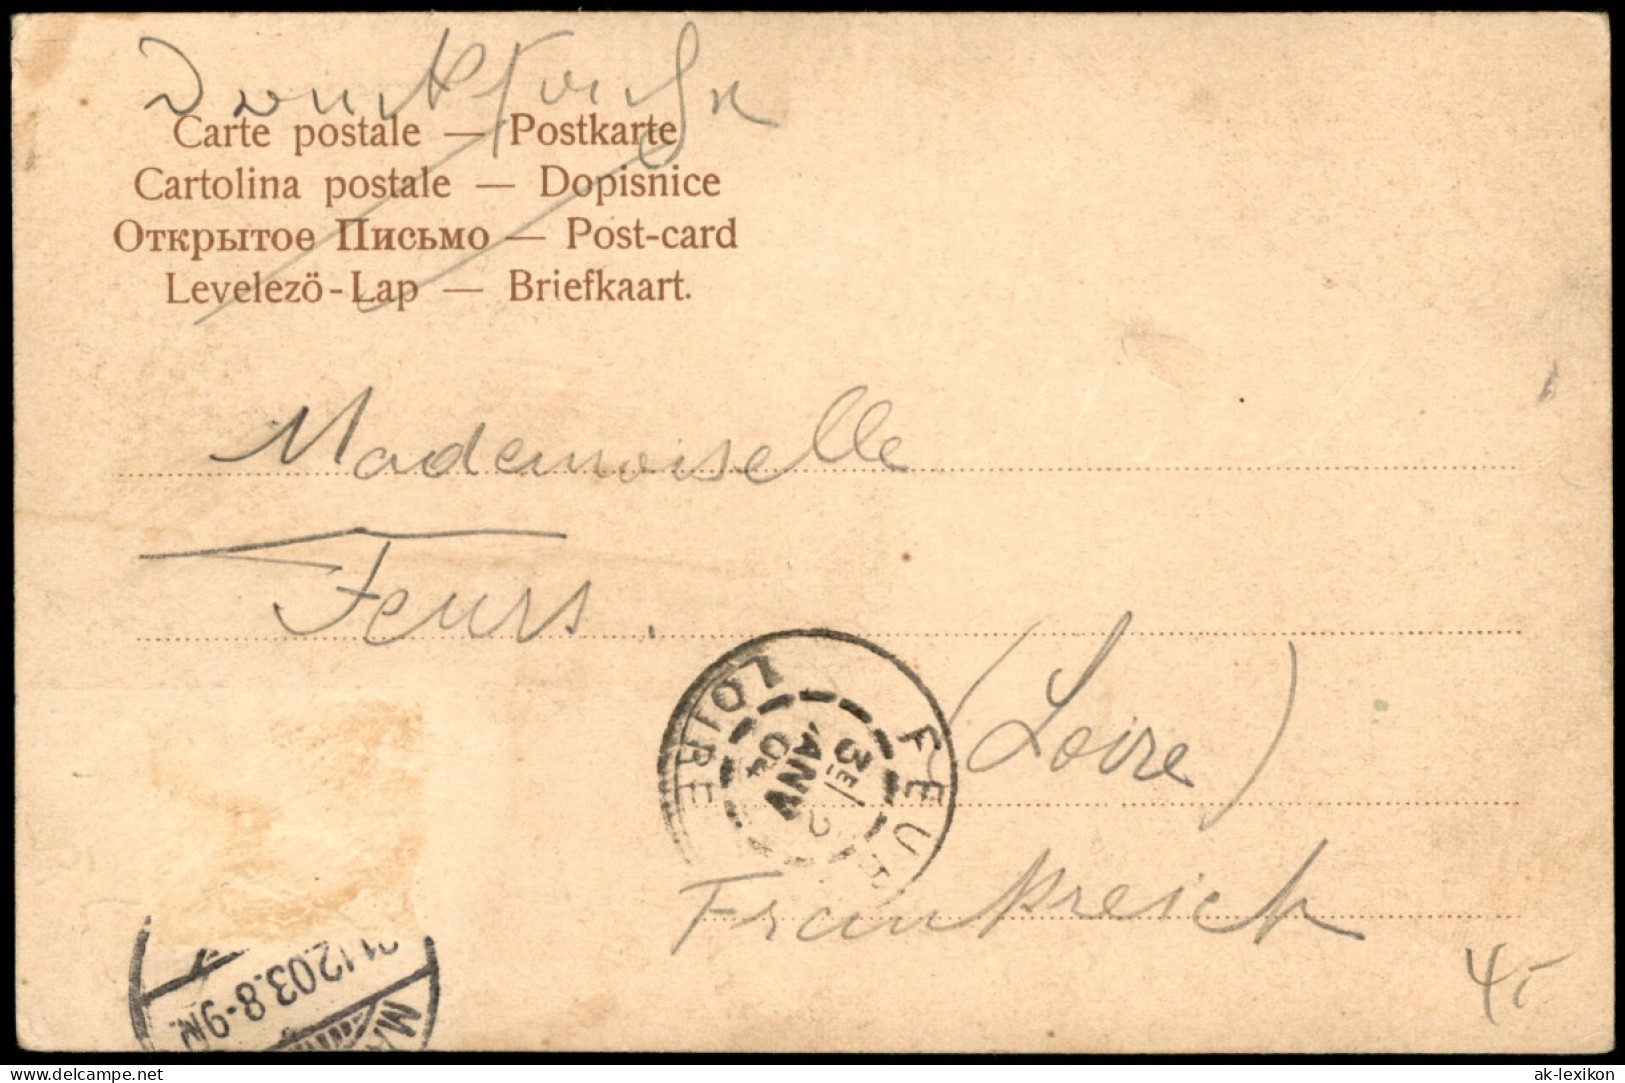 Drucksache
Carte postale — Postkarte
Cartolina postale — Dopisnice
Открытое Письмо — Post-card
Levelező-Lap — Briefkaart.
Mademoiselle
Feurs.
(Loire)
Frankreich
FEURS LOIRE
3E/2
JANV
04
31.12.03.8-9N.
45
ak-ansichtskarten.de
ak-lexikon